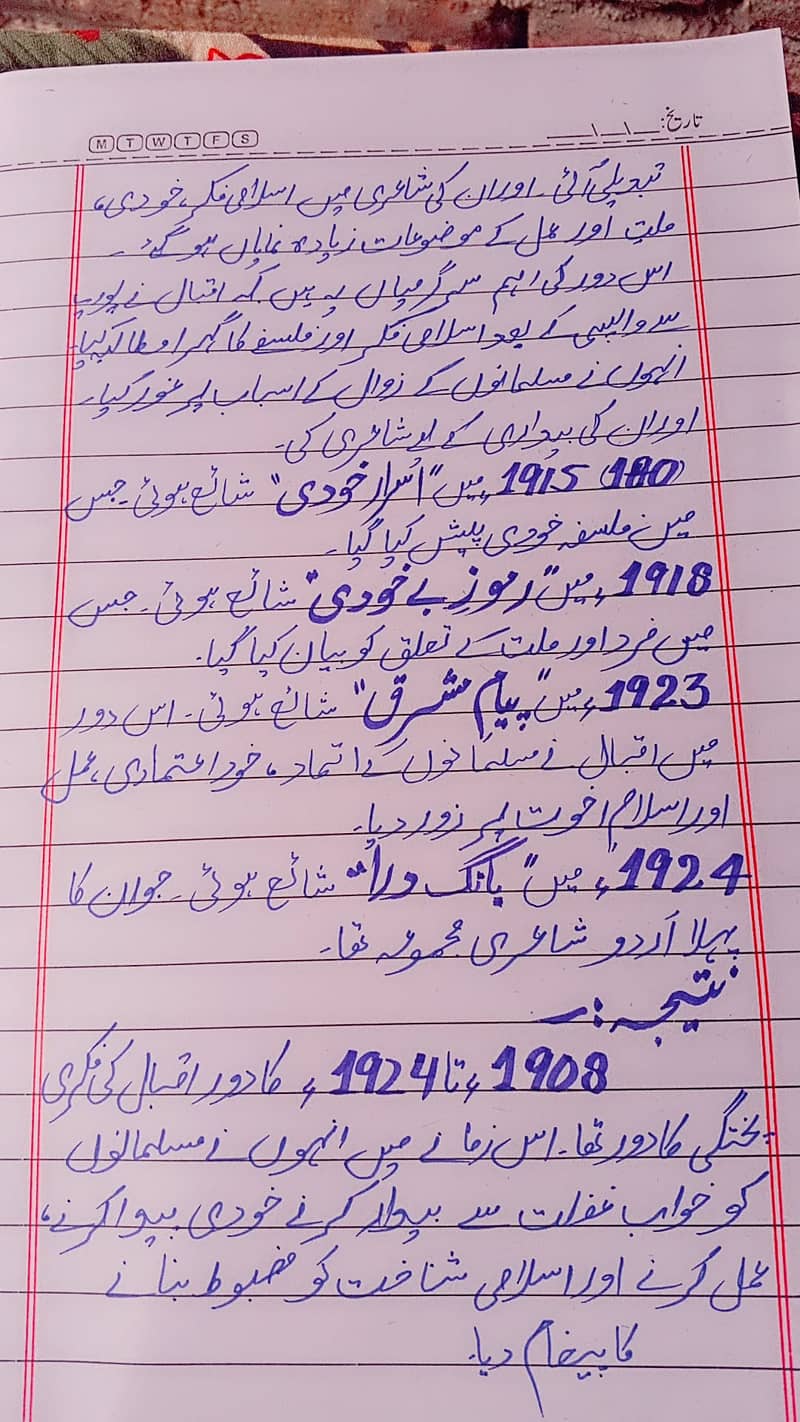 تاریخ: __\__\__
M T W T F S
تبدیلی آئی۔ اور ان کی شاعری میں اسلامی فکر، خودی،
ملت اور عمل کے موضوعات زیادہ نمایاں ہو گئے۔
اس دور کی اہم سرگرمیاں یہ ہیں کہ اقبال نے یورپ
سے واپسی کے بعد اسلامی فکر اور فلسفے کا گہرا مطالعہ کیا۔
انہوں نے مسلمانوں کے زوال کے اسباب پر غور کیا۔
اور ان کی بیداری کے لئے شاعری کی۔
(180) 1915ء میں "اسرار خودی" شائع ہوئی۔ جس
میں فلسفہ خودی پیش کیا گیا۔
1918ء میں "رموزِ بے خودی" شائع ہوئی۔ جس
میں فرد اور ملت کے تعلق کو بیان کیا گیا۔
1923ء میں "پیامِ مشرق" شائع ہوئی۔ اس دور
میں اقبال نے مسلمانوں کے اتماد، خود اعتمادی، عمل
اور اسلام اخوت پر زور دیا۔
1924ء میں "بانگ درا" شائع ہوئی۔ جو ان کا
پہلا اُردو شاعری مجموعہ تھا۔
نتیجہ:۔
1908ء تا 1924ء کا دور اقبال کی فکری
پختگی کا دور تھا۔ اس زمانے میں انہوں نے مسلمانوں
کو خواب غفلت سے بیدار کرنے خودی پیدا کرنے،
عمل کرنے اور اسلامی شناخت کو مضبوط بنانے
کا پیغام دیا۔